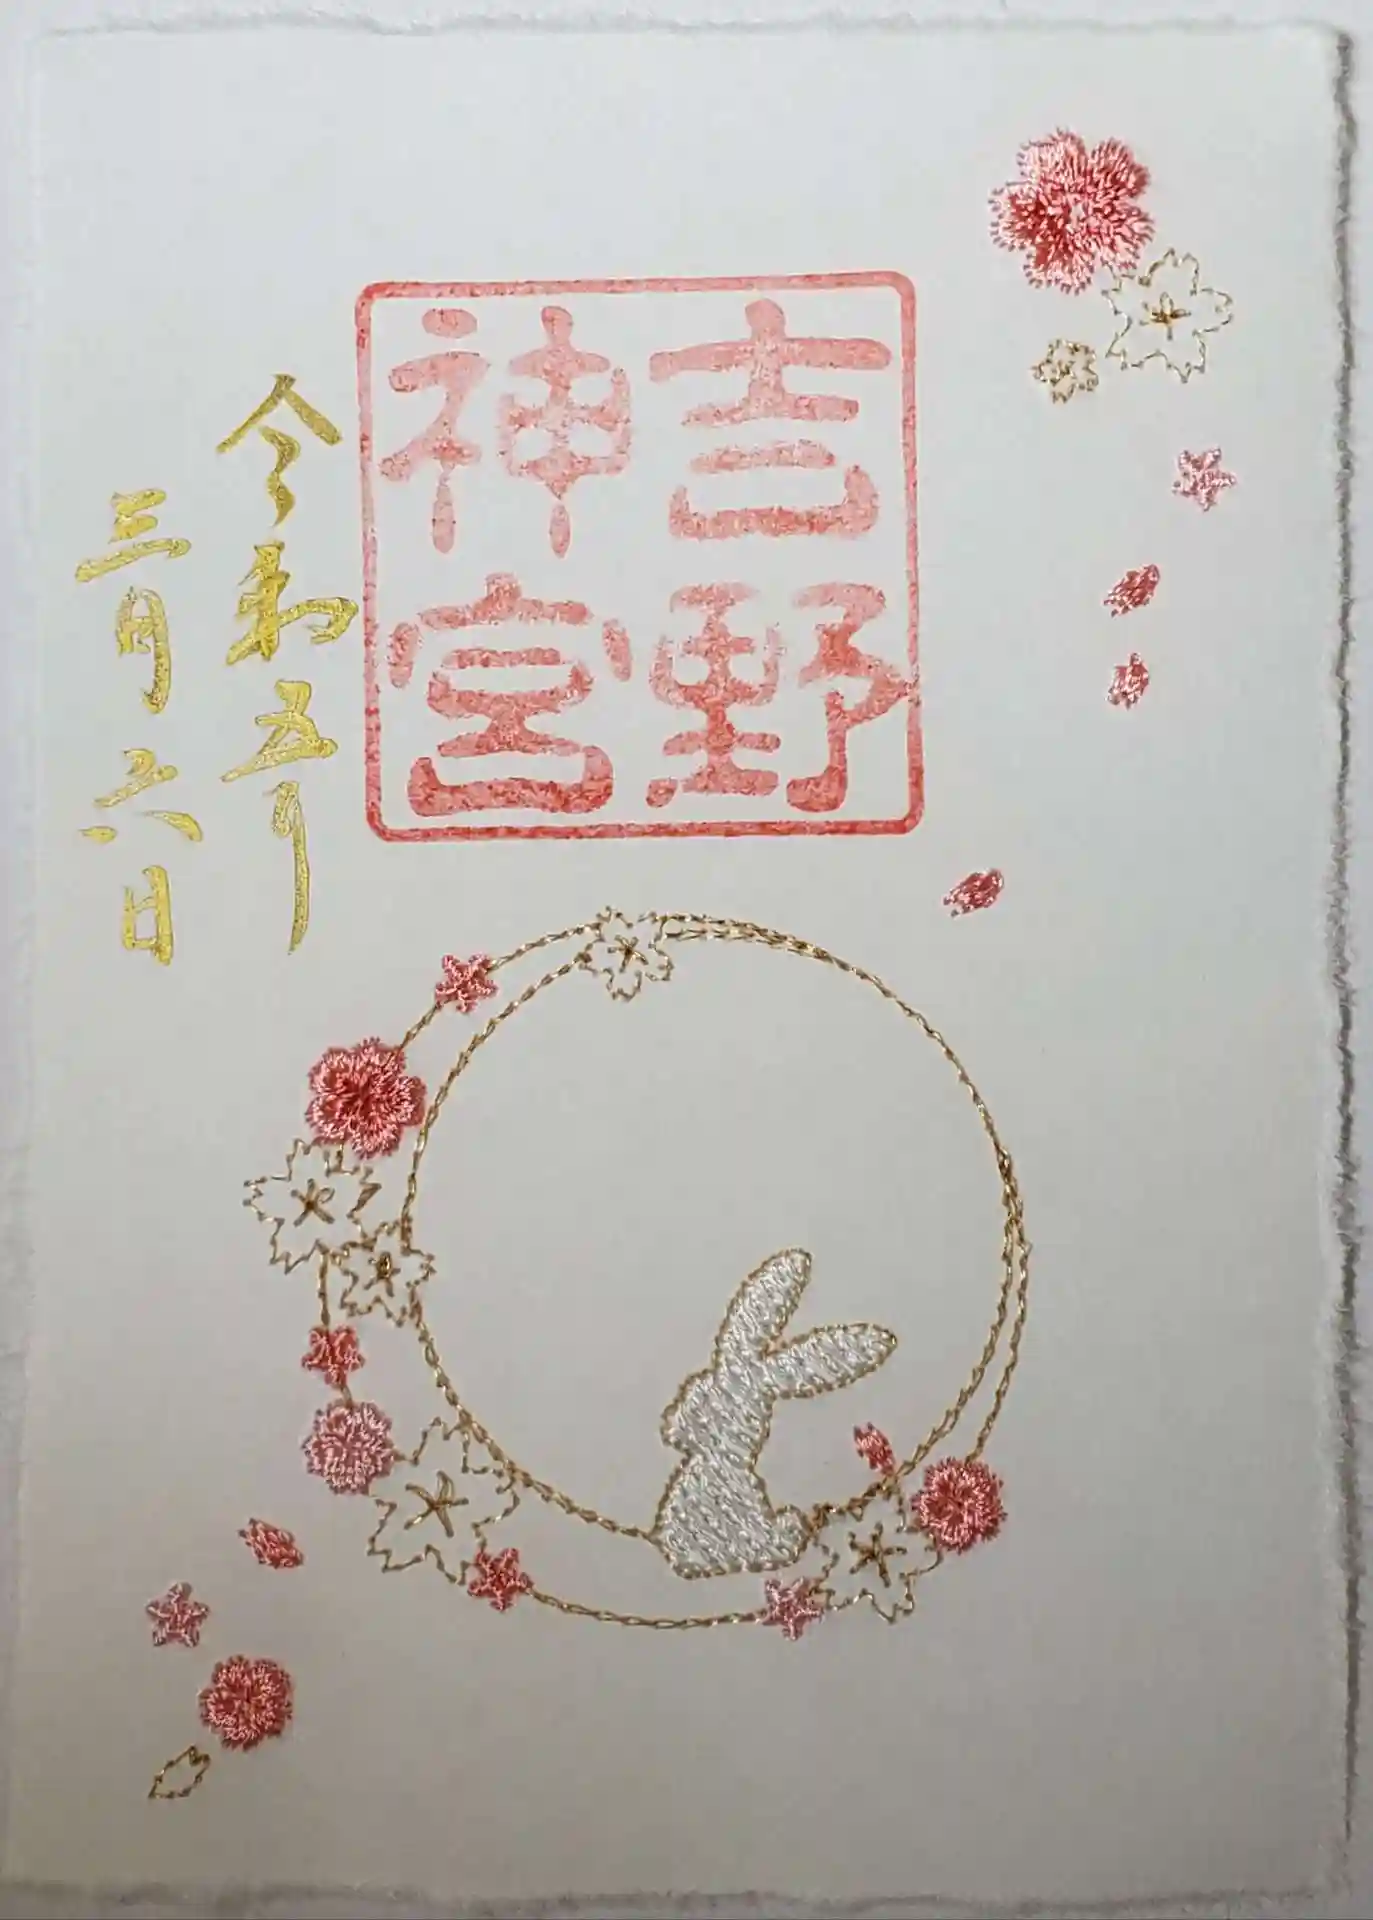 吉野
神宮
令和五年
三月六日